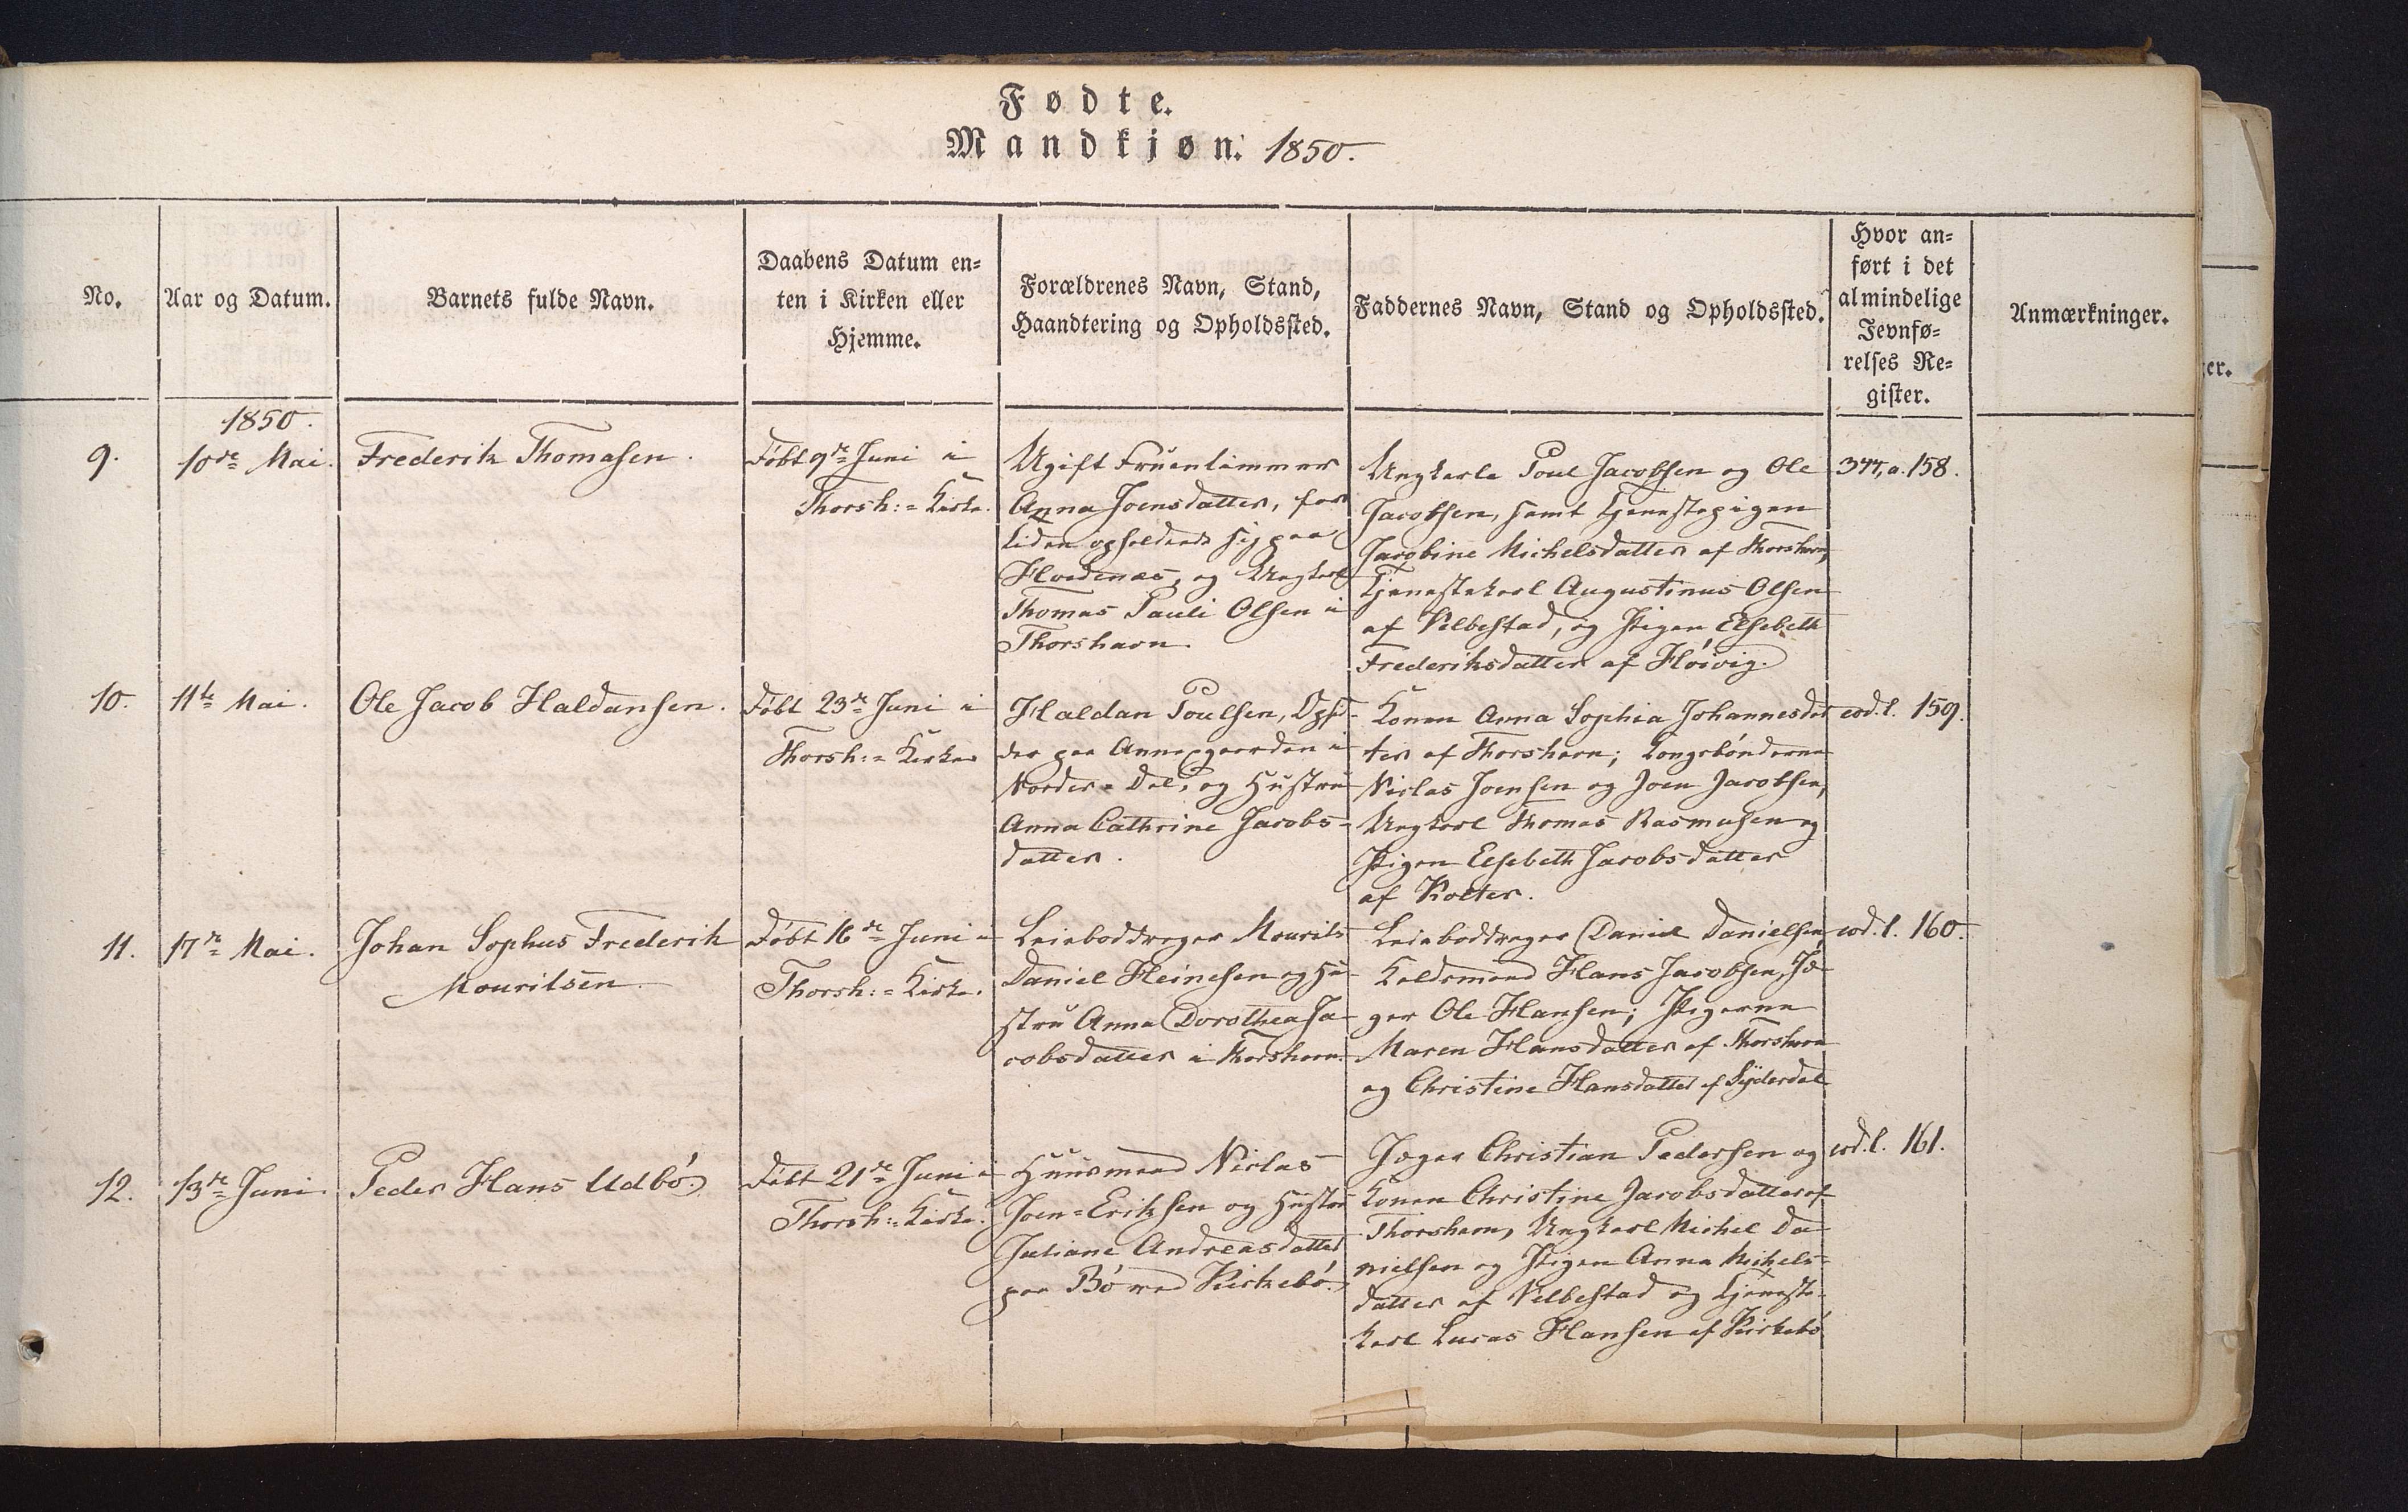 Fødte.
Mandkjøn. 1850.
No.
Aar og Datum.
Barnets fulde Navn.
Daabens Datum en=
ten i Kirken eller
Hjemme.
Forældrenes Navn, Stand,
Haandtering og Opholdssted.
Faddernes Navn, Stand og Opholdssted.
Hvor an=
ført i det
almindelige
Jevnfø=
relses Re=
gister.
Anmærkninger.
er.
1850.
9.
10de Mai.
Frederik Thomasen.
Døbt 9de Juni i
Thorsh:= Kirke.
Ugift Fruentimmer
Anna Joensdatter, for
tiden opholdende sig paa
Hvidenæs, og Ungkarl
Thomas Pauli Olsen i
Thorshavn.
Ungkarle Poul Jacobsen og Ole
Jacobsen, samt Tjenestepigen
Jacobine Michelsdatter af Thorshavn,
Tjenestekarl Augustinus Olsen
af Velbestad, og Pigen Elsebeth
Frederiksdatter af Høivig.
344, a. 158.
10.
11te Mai.
Ole Jacob Haldansen.
Døbt 23de Juni i
Thorsh:= Kirke
Haldan Poulsen, Opsid-
der paa Annexgaarden i
Norder=Dal, og Hustru
Anna Cathrine Jacobs-
datter.
Konen Anna Sophia Johannesdat
ter af Thorshavn; Kongsbønderne
Niclas Joensen og Joen Jacobsen,
Ungkarl Thomas Rasmusen og
Pigen Elsebeth Jacobsdatter
af Kolter.
eod. l. 159.
11.
17de Mai.
Johan Sophus Frederik
Mouritsen
Døbt 16de Juni i
Thorsh:= Kirke.
Leieboddrager Mourits
Daniel Heinesen og Hu-
stru Anna Dorothea Ja-
cobsdatter i Thorshavn.
Leieboddrager Daniel Danielsen,
Kaldsmand Hans Jacobsen, Jæ-
ger Ole Hansen; Pigerne
Maren Hansdatter af Thorshavn
og Christine Hansdatter af Syderdal
eod. l. 160.
12.
13de Juni
Peder Hans Udbø
Døbt 21de Juni i
Thorsh:= Kirke.
Huusmand Niclas
Joen=Eriksen og Hustru
Juliane Andreasdatter
paa Bø ved Kirkebø.
Jæger Christian Pedersen og
Konen Christine Jacobsdatter af
Thorshavn, Ungkarl Michel Da-
nielsen og Pigen Anna Michels-
datter af Velbestad og Tjeneste-
karl Lucas Hansen af Kirkebø
eod. l. 161.